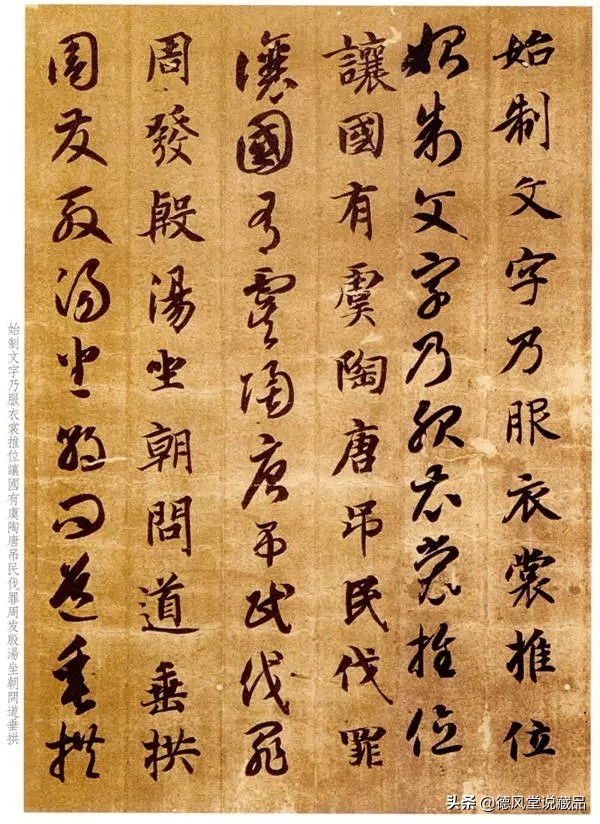 始制文字乃服衣裳推位
始制文字乃服衣裳推位
讓國有虞陶唐吊民伐罪
讓國有虞陶唐吊民伐罪
周發殷湯坐朝問道垂拱
周發殷湯坐朝問道垂拱
始制文字乃服衣裳推位讓國有虞陶唐吊民伐罪周发殷湯坐朝問道垂拱
头条 @德风堂说藏品